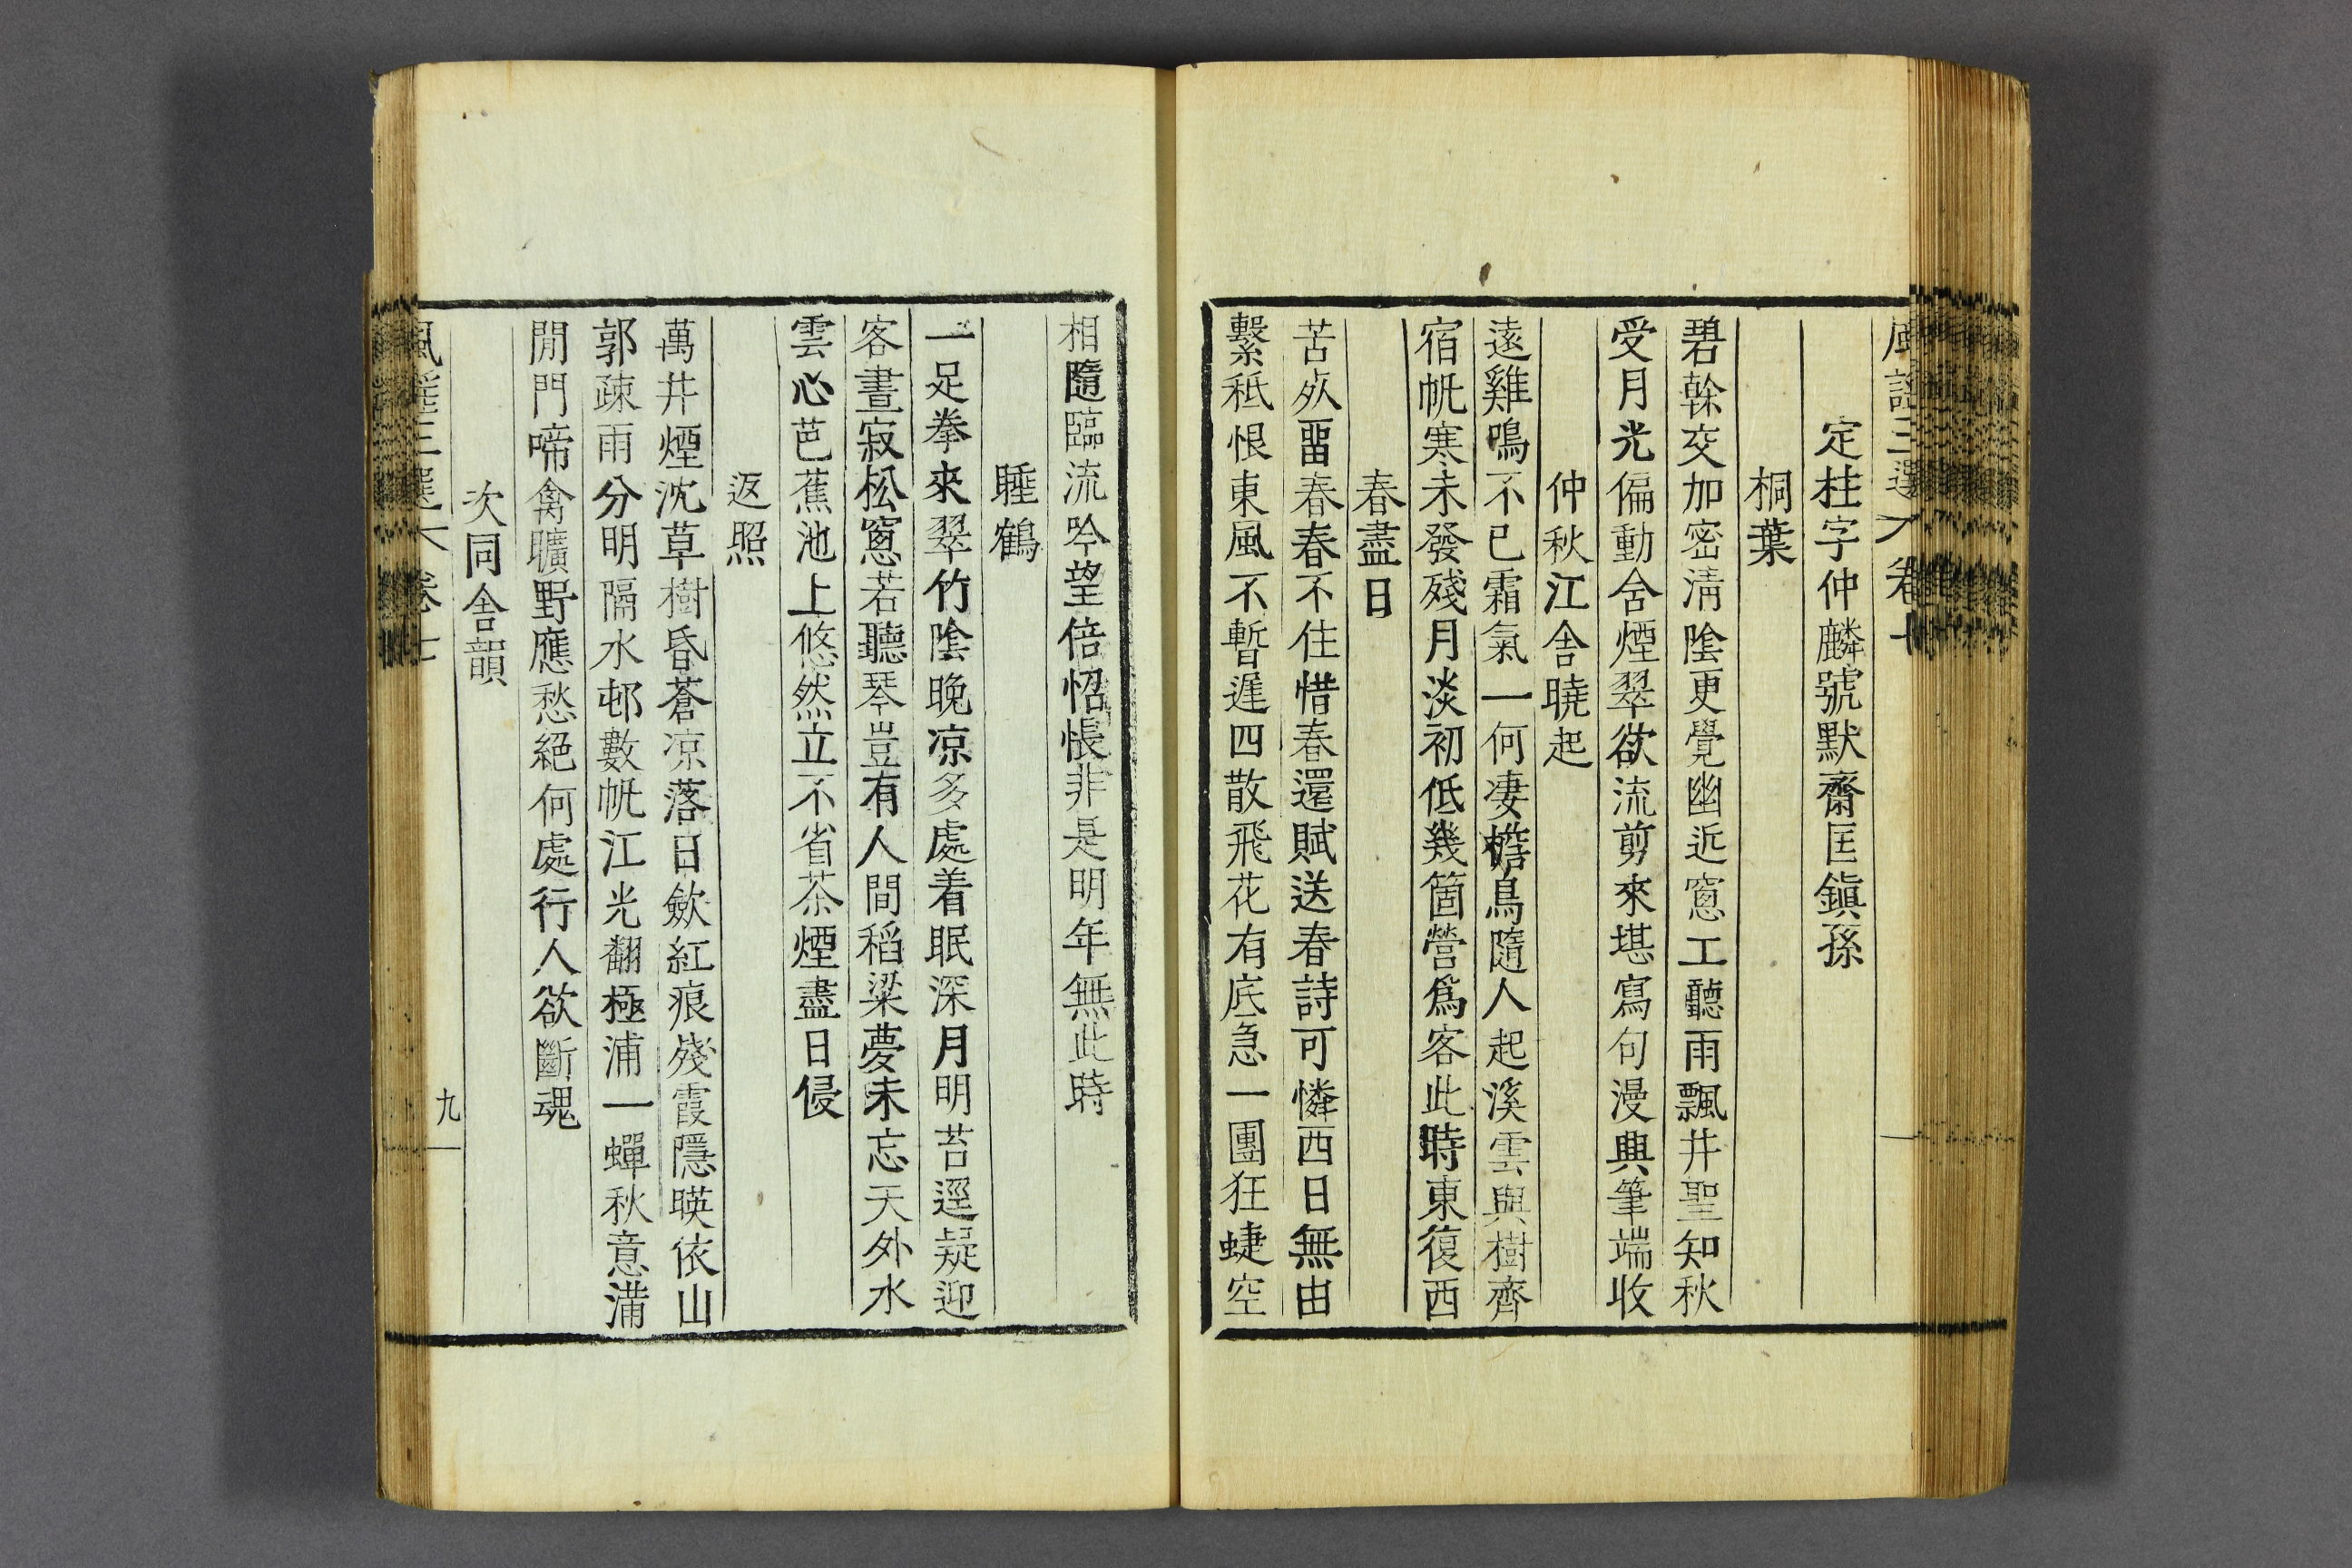 風謠三選 卷七
定柱字仲麟號默齋匡鎭孫
桐葉
碧榦交加密淸陰更覺幽近窓工聽雨飄井聖知秋
受月光偏動含煙翠欲流剪來堪寫句漫與筆端收
仲秋江舍曉起
遠雞鳴不已霜氣一何凄檐鳥隨人起溪雲與樹齊
宿帆寒未發殘月淡初低幾箇營爲客此時東復西
春盡日
苦必畱春春不住惜春還賦送春詩可憐西日無由
繫秪恨東風不暫遲四散飛花有底急一團狂蜨空
相隨臨流吟望倍怊悵非是明年無此時
睡鶴
一足拳來翠竹陰晚凉多處着眠深月明苔逕疑迎
客晝寂松窓若聽琴豈有人間稻粱夢未忘天外水
雲心芭蕉池上悠然立不省茶煙盡日侵
返照
萬井煙沈草樹昏蒼凉落日歛紅痕殘霞隱暎依山
郭疎雨分明隔水邨數帆江光翻極浦一蟬秋意滿
閒門啼禽曠野應愁絕何處行人欲斷魂
次同舍韻
風謠三選 卷七
九